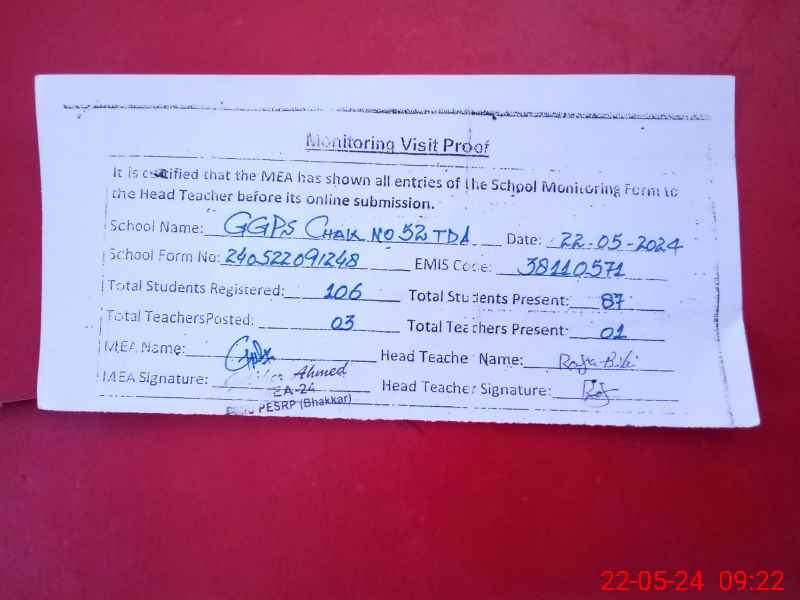 Monitoring Visit Proof
It is certified that the MEA has shown all entries of the School Monitoring Form to
the Head Teacher before its online submission.
School Name: GGPS CHAK NO 52 TDA Date: 22-05-2024
School Form No: 240522091248 EMIS Code: 38110571
Total Students Registered: 106 Total Students Present: 87
Total TeachersPosted: 03 Total Teachers Present: 01
MEA Name: Head Teacher Name: Bibi
MEA Signature: Ahmed Head Teacher Signature:
EA-24
PESRP (Bhakkar)
22-05-24 09:22